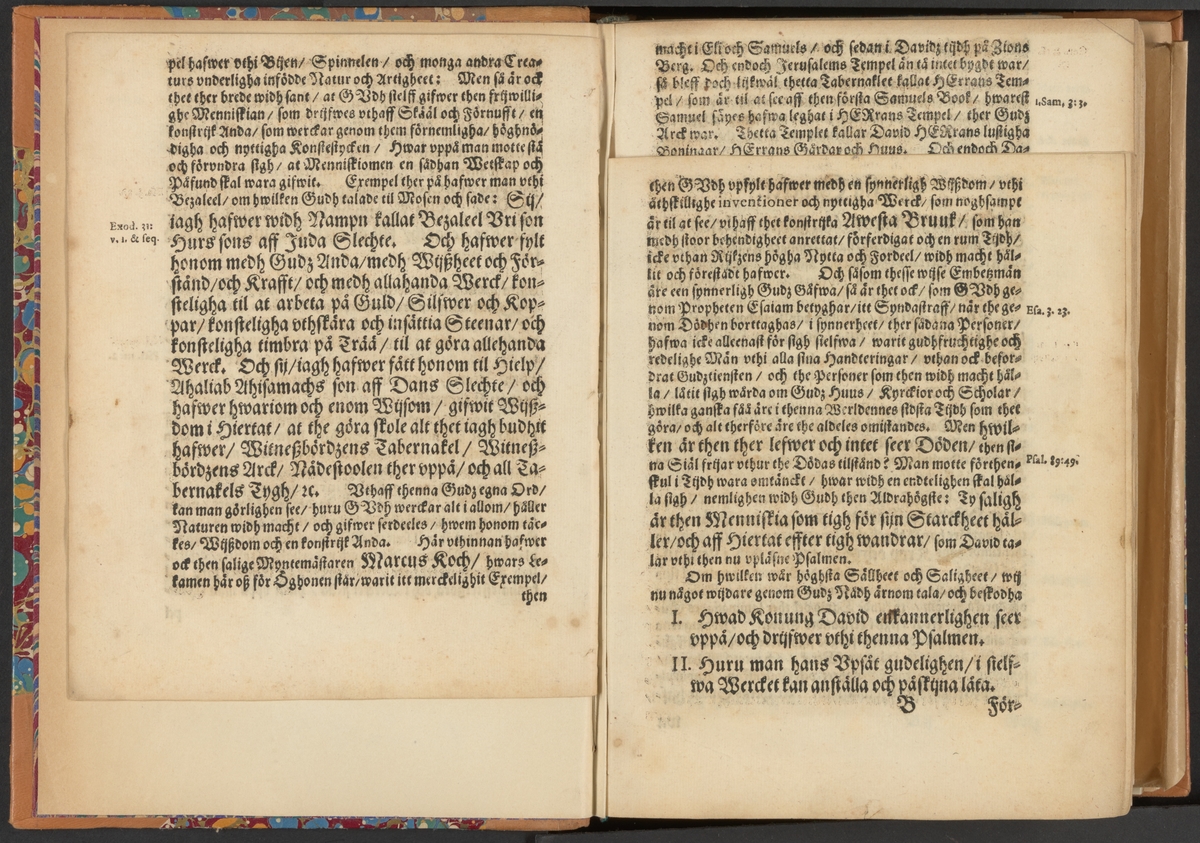 pel hafwer vthi Bijen/ Spinnelen/ och monga andra Crea-
turs vnderligha infödde Natur och Artigheet: Men så är ock
thet ther brede widh sant/ at GVdh sielff gifwer then frijwilli-
ghe Menniskian/ som drijfwes vthaff Skääl och Förnufft/ en
konstrijk Anda/ som werckar genom them förnemligha/ höghnö-
digha och nyttigha Konstestycken/ Hwar vppå man motte stå
och förvndra sigh/ at Menniskiomen en sådhan Wetskap och
Påfund skal wara gifwit. Exempel ther på hafwer man vthi
Bezaleel/ om hwilken Gudh talade til Mosen och sade: Sij/
Exod. 31:
v. 1. & seq.
iagh hafwer widh Nampn kallat Bezaleel Vri son
Hurs sons aff Juda Slechte. Och hafwer fylt
honom medh Gudz Anda/ medh Wijßheet och För-
stånd/ och Krafft/ och medh allahanda Werck/ kon-
steligha til at arbeta på Guld/ Silfwer och Kop-
par/ konsteligha vthskära och insättia Steenar/ och
konsteligha timbra på Trää/ til at göra allehanda
Werck. Och sij/ iagh hafwer fått honom til Hielp/
Ahaliab Ahisamachs son aff Dans Slechte/ och
hafwer hwariom och enom Wijsom/ gifwit Wijß-
dom i Hiertat/ at the göra skole alt thet iagh budhit
hafwer/ Witneßbördzens Tabernakel/ Witneß-
bördzens Arck/ Nådestoolen ther vppå/ och all Ta-
bernakels Tygh/ ꝛc. Vthaff thenna Gudz egna Ord/
kan man görlighen see/ huru GVdh werckar alt i allom/ håller
Naturen widh macht/ och gifwer serdeeles/ hwem honom täc-
kes/ Wijßdom och en konstrijk Anda. Här vthinnan hafwer
ock then salige Myntemästaren Marcus Koch/ hwars Le-
kamen här oß för Öghonen står/ warit itt merckelighit Exempel/
then
macht i Eli och Samuels/ och sedan i Davidz tijdh på Zions
Berg. Och endoch Jerusalems Tempel än tå intet bygdt war/
så bleff doch lijkwäl thetta Tabernaklet kallat HErrans Tem-
pel/ som är til at see aff then första Samuels Book/ hwarest
1. Sam. 3: 3.
Samuel säyes hafwa leghat i HERrans Tempel/ ther Gudz
Arck war. Thetta Templet kallar David HERrans lustigha
Boningar/ HErrans Gårdar och Huus. Och endoch Da-
then GVdh vpfylt hafwer medh en synnerligh Wijßdom/ vthi
åthskillighe inventioner och nyttigha Werck/ som noghsampt
är til at see/ vthaff thet konstrijka Awesta Bruuk/ som han
medh stoor behendigheet anrettat/ förferdigat och en rum Tijdh/
icke vthan Rijkzens högha Nytta och Fordeel/ widh macht häl-
lit och förestådt hafwer. Och såsom thesse wijse Embetzmän
äre een synnerligh Gudz Gåfwa/ så är thet ock/ som GVdh ge-
nom Propheten Esaiam betyghar/ itt Syndastraff/ när the ge-
Esa. 3. 23.
nom Dödhen borttaghas/ i synnerheet/ ther sådana Personer/
hafwa icke alleenast för sigh sielfwa/ warit gudhfruchtighe och
redelighe Män vthi alla sina Handteringar/ vthan ock befor-
drat Gudztiensten/ och the Personer som then widh macht häl-
la/ låtit sigh wårda om Gudz Huus/ Kyrckior och Scholar/
hwilka ganska fåå äre i thenna Werldennes sidsta Tijdh som thet
göra/ och alt therföre äre the aldeles omistandes. Men hwil-
ken är then ther lefwer och intet seer Döden/ then si-
na Siäl frijar vthur the Dödas tilstånd? Man motte förthen-
Psal. 89: 49.
skul i Tijdh wara omtänckt/ hwar widh en endtelighen skal häl-
la sigh/ nemlighen widh Gudh then Aldrahögste: Ty saligh
är then Menniskia som tigh för sijn Starckheet häl-
ler/ och aff Hiertat effter tigh wandrar/ som David ta-
lar vthi then nu vpläsne Psalmen.
Om hwilken wår höghsta Sällheet och Saligheet/ wij
nu något wijdare genom Gudz Nådh ärnom tala/ och beskodha
I. Hwad Konung David enkannerlighen seer
vppå/ och drijfwer vthi thenna Psalmen.
II. Huru man hans Vpsåt gudelighen/ i sielf-
wa Wercket kan anställa och påskijna låta.
B För-